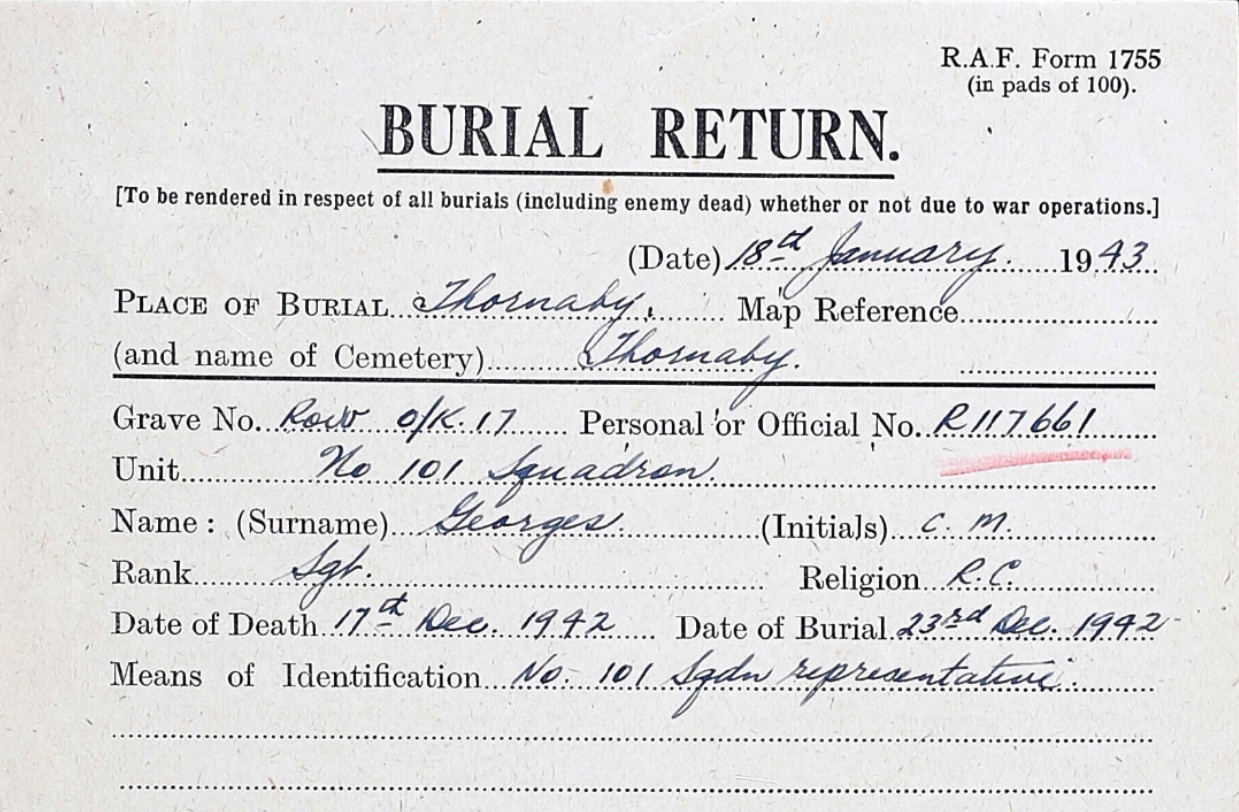 R.A.F. Form 1755
(in pads of 100).
BURIAL RETURN.
[To be rendered in respect of all burials (including enemy dead) whether or not due to war operations.]
(Date) 18th January. 1943.
PLACE OF BURIAL Thornaby. Map Reference
(and name of Cemetery) Thornaby.
Grave No. Row O/K.17 Personal or Official No. R117661
Unit No 101 Squadron.
Name: (Surname) Georges. (Initials) C. M.
Rank Sgt. Religion R.C.
Date of Death 17th Dec. 1942 Date of Burial 23rd Dec. 1942
Means of Identification No. 101 Sqdn representative.